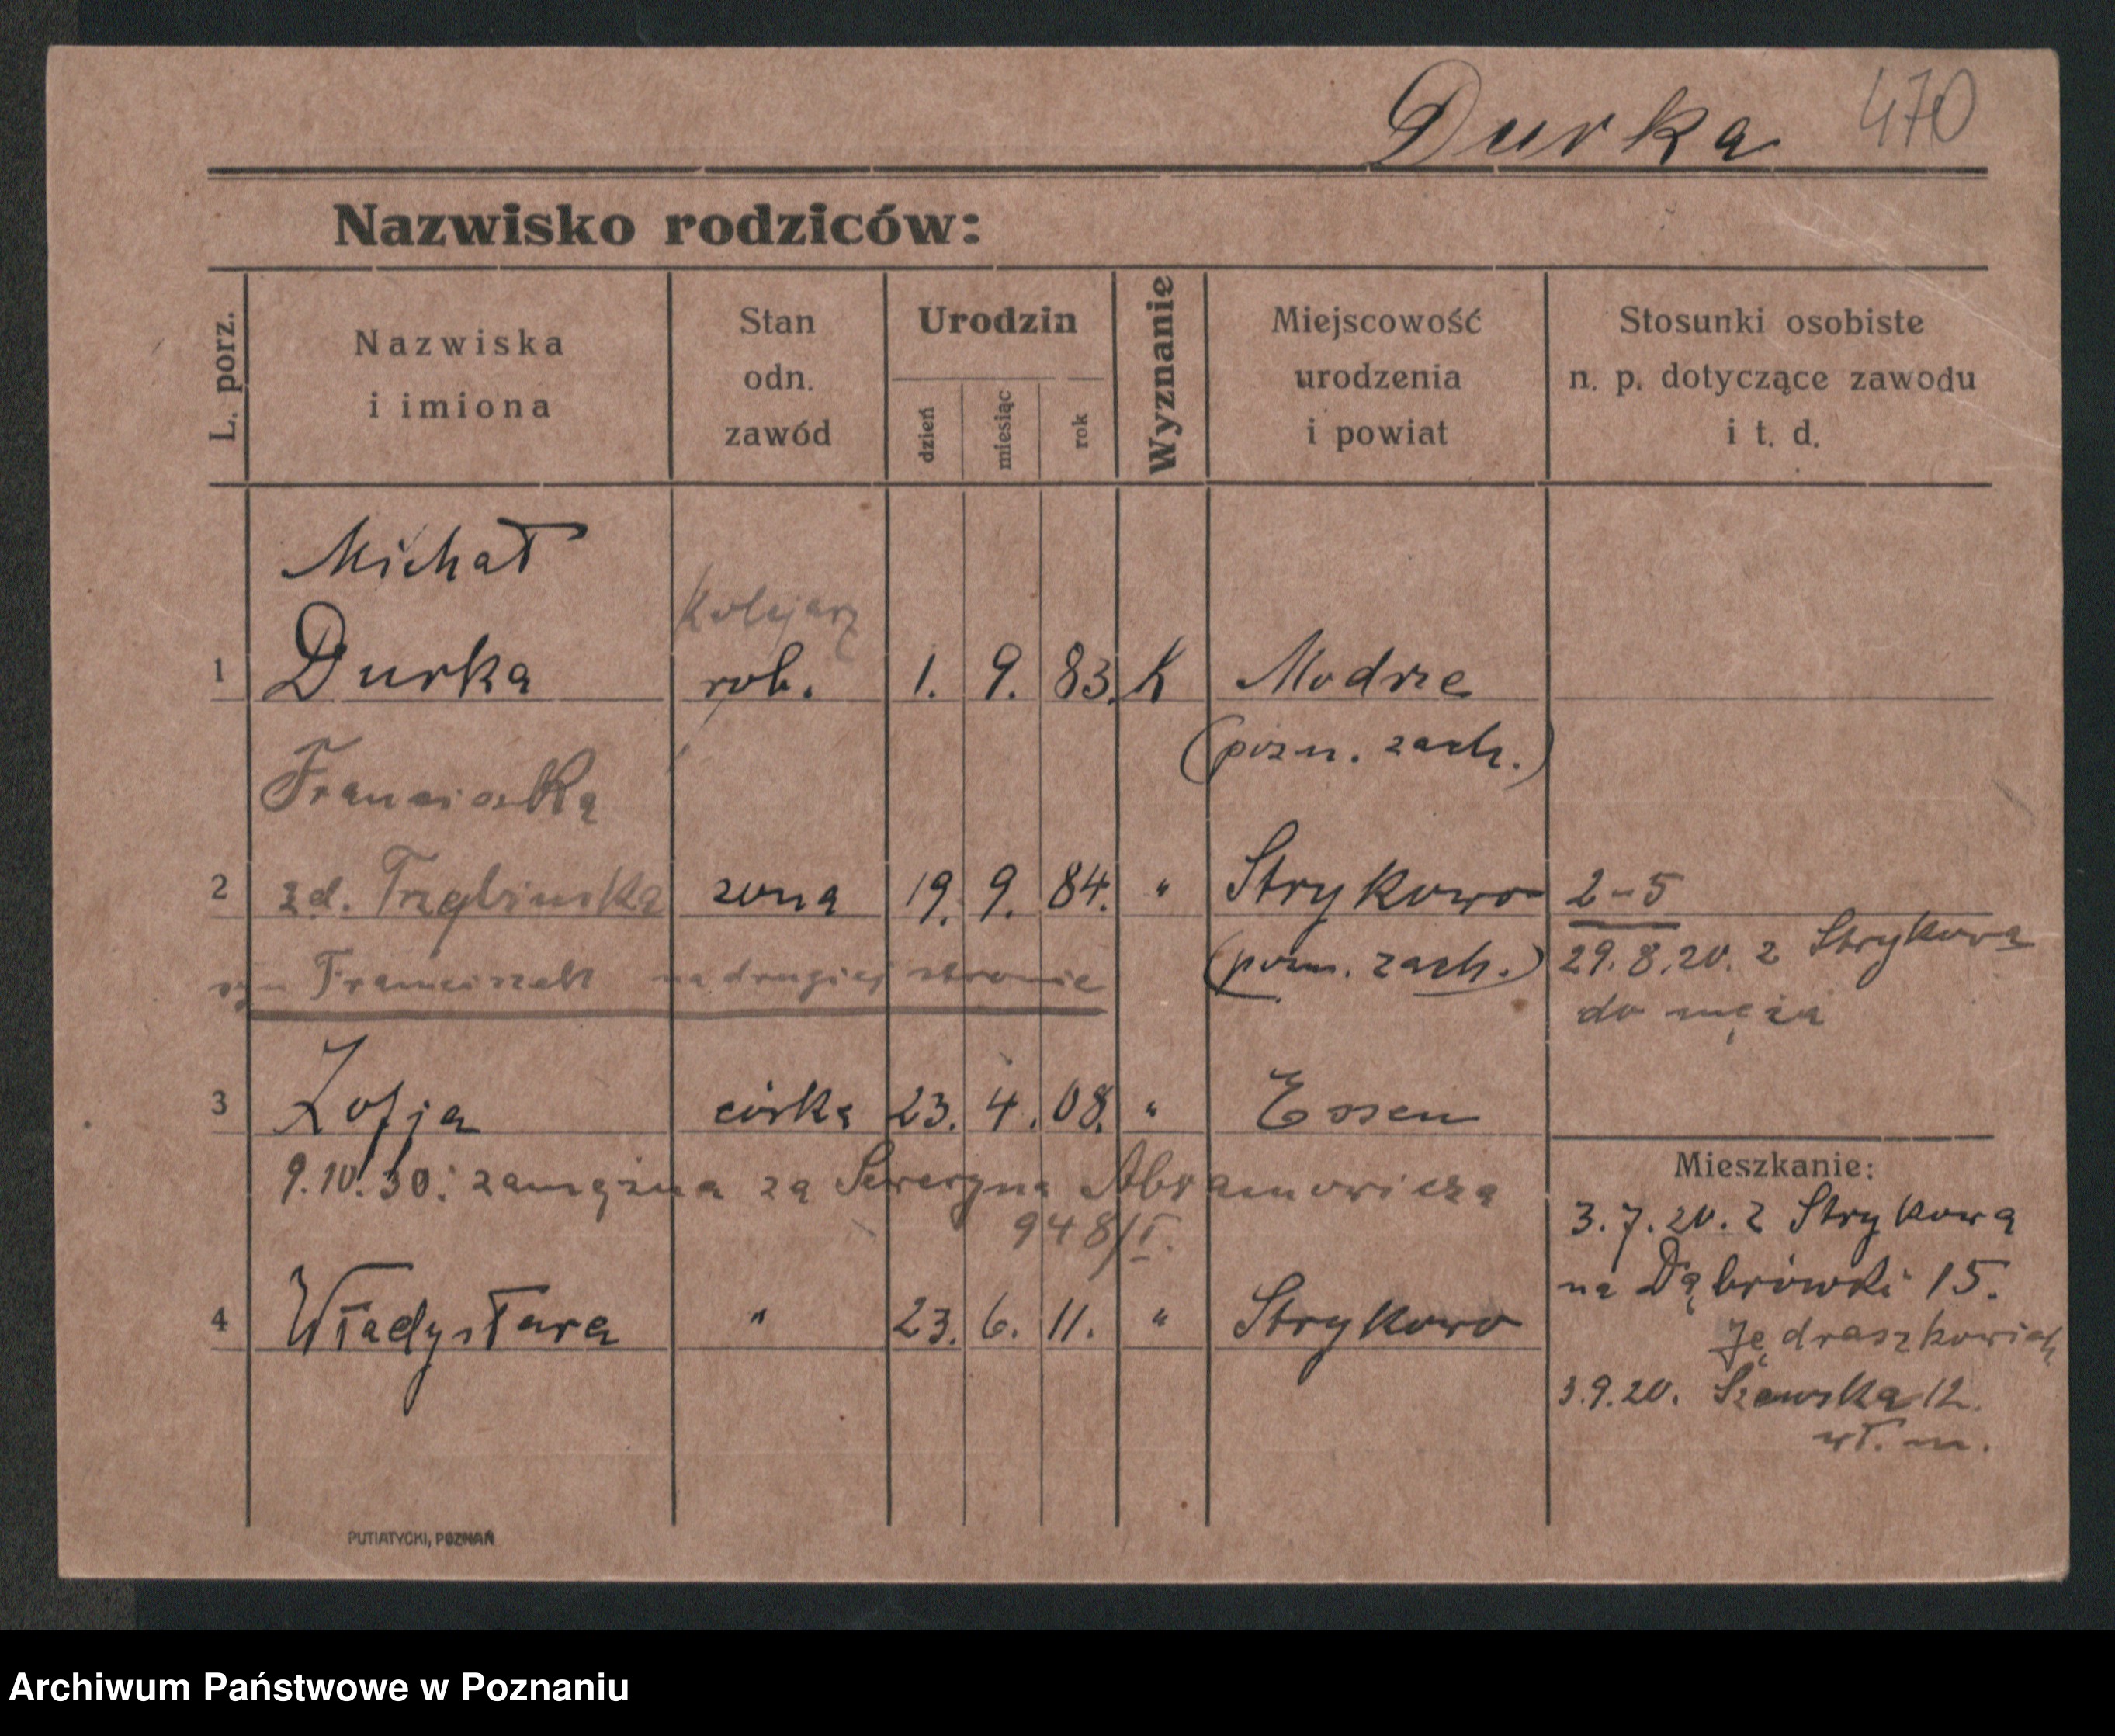 Durka 470
Nazwisko rodziców:
L. porz.
Nazwiska
i imiona
Stan
odn.
zawód
Urodzin
dzień
miesiąc
rok
Wyznanie
Miejscowość
urodzenia
i powiat
Stosunki osobiste
n. p. dotyczące zawodu
i t. d.
Michał
Kolejarz
1 Durka rob. 1. 9. 83. K Modrze
(pozn. zach.)
Franciszka
2 zd. Trzebinska zona 19. 9. 84. " Strykowo 2-5
(pozn. zach.) 29.8.20. z Strykowa
syn Franciszek na drugiej stronie
do męża
3 Zofja córka 23. 4. 08. " Essen
9.10.30. zamężna za Seweryna Abramowicza
948/I.
4 Władysława " 23. 6. 11. " Strykowo
Mieszkanie:
3.7.20. z Strykowa
na Dąbrówki 15.
Jędraszkowiak
3.9.20. Szewska 12.
wł. m.
PUTIATYCKI, POZNAŃ
Archiwum Państwowe w Poznaniu